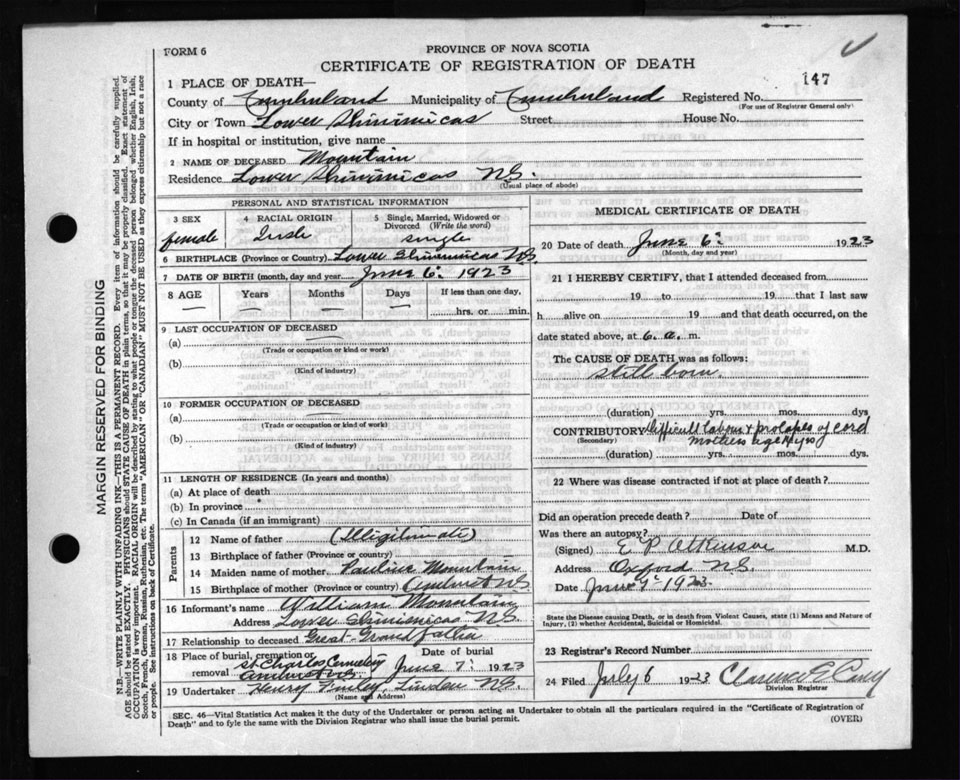 FORM 6
PROVINCE OF NOVA SCOTIA
CERTIFICATE OF REGISTRATION OF DEATH
147
1 PLACE OF DEATH—
County of Cumberland Municipality of Cumberland Registered No.
(For use of Registrar General only)
City or Town Lower Shinimicas Street House No.
If in hospital or institution, give name
2 NAME OF DECEASED Mountain
Residence Lower Shinimicas N.S.
(Usual place of abode)
PERSONAL AND STATISTICAL INFORMATION
3 SEX 4 RACIAL ORIGIN 5 Single, Married, Widowed or
Divorced (Write the word)
female Irish single
6 BIRTHPLACE (Province or Country) Lower Shinimicas N.S.
7 DATE OF BIRTH (month, day and year) June 6. 1923
8 AGE Years Months Days If less than one day,
hrs. or min.
9 LAST OCCUPATION OF DECEASED
(a)
(Trade or occupation or kind or work)
(b)
(Kind of industry)
10 FORMER OCCUPATION OF DECEASED
(a)
(Trade or occupation or kind of work)
(b)
(Kind of industry)
11 LENGTH OF RESIDENCE (In years and months)
(a) At place of death
(b) In province
(c) In Canada (if an immigrant)
Parents
12 Name of father (Illigitimate)
13 Birthplace of father (Province or country)
14 Maiden name of mother Mountain
15 Birthplace of mother (Province or Country) Amherst N.S.
16 Informant's name William Mountain
Address Lower Shinimicas N.S.
17 Relationship to deceased Great-Grandfather
18 Place of burial, cremation or Date of burial
removal St Charles Cemetery June 7. 1923
Amherst N.S.
19 Undertaker Henry Linden N.S.
(Name and Address)
MEDICAL CERTIFICATE OF DEATH
20 Date of death June 6. 1923
(Month, day and year)
21 I HEREBY CERTIFY, that I attended deceased from
19 to 19 that I last saw
h alive on 19 and that death occurred, on
date stated above, at 6. a. m.
The CAUSE OF DEATH was as follows:
still born
(duration) yrs. mos. dys
CONTRIBUTORY Difficult labour & prolapse of cord
(Secondary) mothers age
(duration) yrs. mos. dys.
22 Where was disease contracted if not at place of death?
Did an operation precede death? Date of
Was there an autopsy?
(Signed) E P Atkinson M.D.
Address Oxford N.S.
Date June 1923.
State the Disease causing Death, or in death from Violent Causes, state (1) Means and Nature of
Injury, (2) whether Accidental, Suicidal or Homicidal.
23 Registrar's Record Number
24 Filed July 6 1923 Clarence
Division Registrar
SEC. 46—Vital Statistics Act makes it the duty of the Undertaker or person acting as Undertaker to obtain all the particulars required in the "Certificate of Registration of
Death" and to fyle the same with the Division Registrar who shall issue the burial permit.
(OVER)
MARGIN RESERVED FOR BINDING
N.B.—WRITE PLAINLY WITH UNFADING INK—THIS IS A PERMANENT RECORD. Every item of information should be carefully supplied.
AGE should be stated EXACTLY. PHYSICIANS should STATE CAUSE OF DEATH in plain terms, so that it may be properly classified. Exact statement of
OCCUPATION is very important. RACIAL ORIGIN will be described by stating to what people or tongue the deceased person belonged whether English, Irish,
Scotch, French, German, Russian, Ruthenian, etc. The terms "AMERICAN" OR "CANADIAN" MUST NOT BE USED as they express citizenship but not a race
or people. See instructions on back of Certificate.